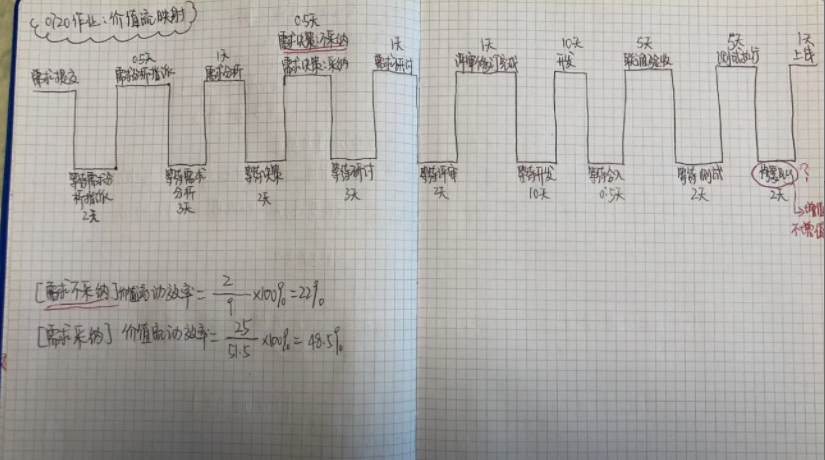 0720作业:价值流映射
0.5天
1天
0.5天
需求决策:不采纳
1天
1天
10天
5天
5天
1天
需求提交
需求分析指派
需求分析
需求决策:采纳
需求研讨
开发
测试执行
上线
等待需求分
析指派
2天
等待需求
分析
3天
等待决策
2天
等待研讨
3天
等待评审
2天
等待开发
10天
等待合入
0.5天
等待测试
2天
2天
?
→增值
不增值
[需求不采纳]价值流动效率=2/9×100%=22%
[需求采纳] 价值流动效率=25/51.5×100%=48.5%